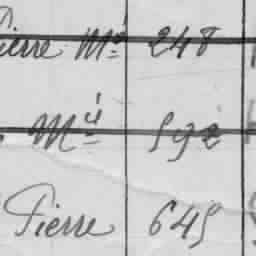 Pierre Mⁱᵉ 248
Mⁱᵉ 592
Pierre 645